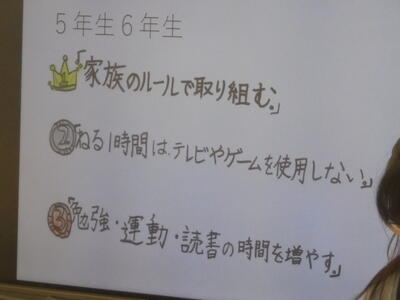 5年生6年生
1「家族のルールで取り組む。」
2「ねる1時間は、テレビやゲームを使用しない。」
3「勉強・運動・読書の時間を増やす。」